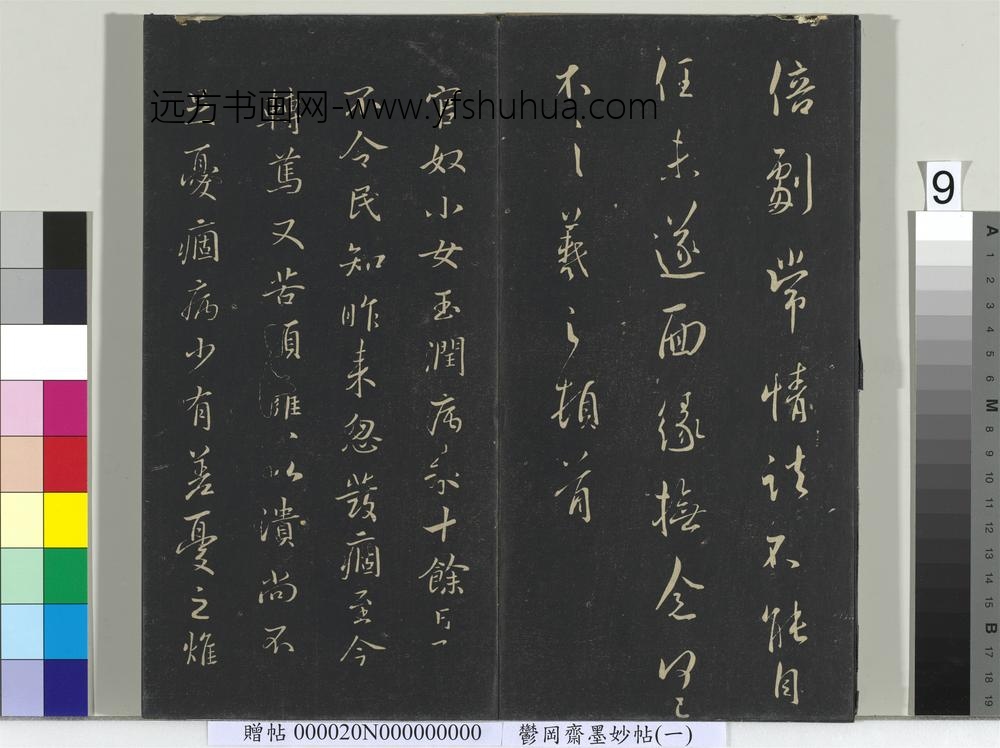 倍劇常情諸不能自
任未遂面緣撫念何已
不一一羲之頓首
官奴小女玉潤病來十餘日一
不令民知昨來忽發痼至今
轉篤又苦頭癰癰以潰尚不
憂痼病少有差憂之燋
远方书画网-www.yfshuhua.com
9
A
1
2
3
4
5
6
M
8
9
10
11
12
13
14
15
B
17
18
19
贈帖 000020N000000000
鬱岡齋墨妙帖(一)